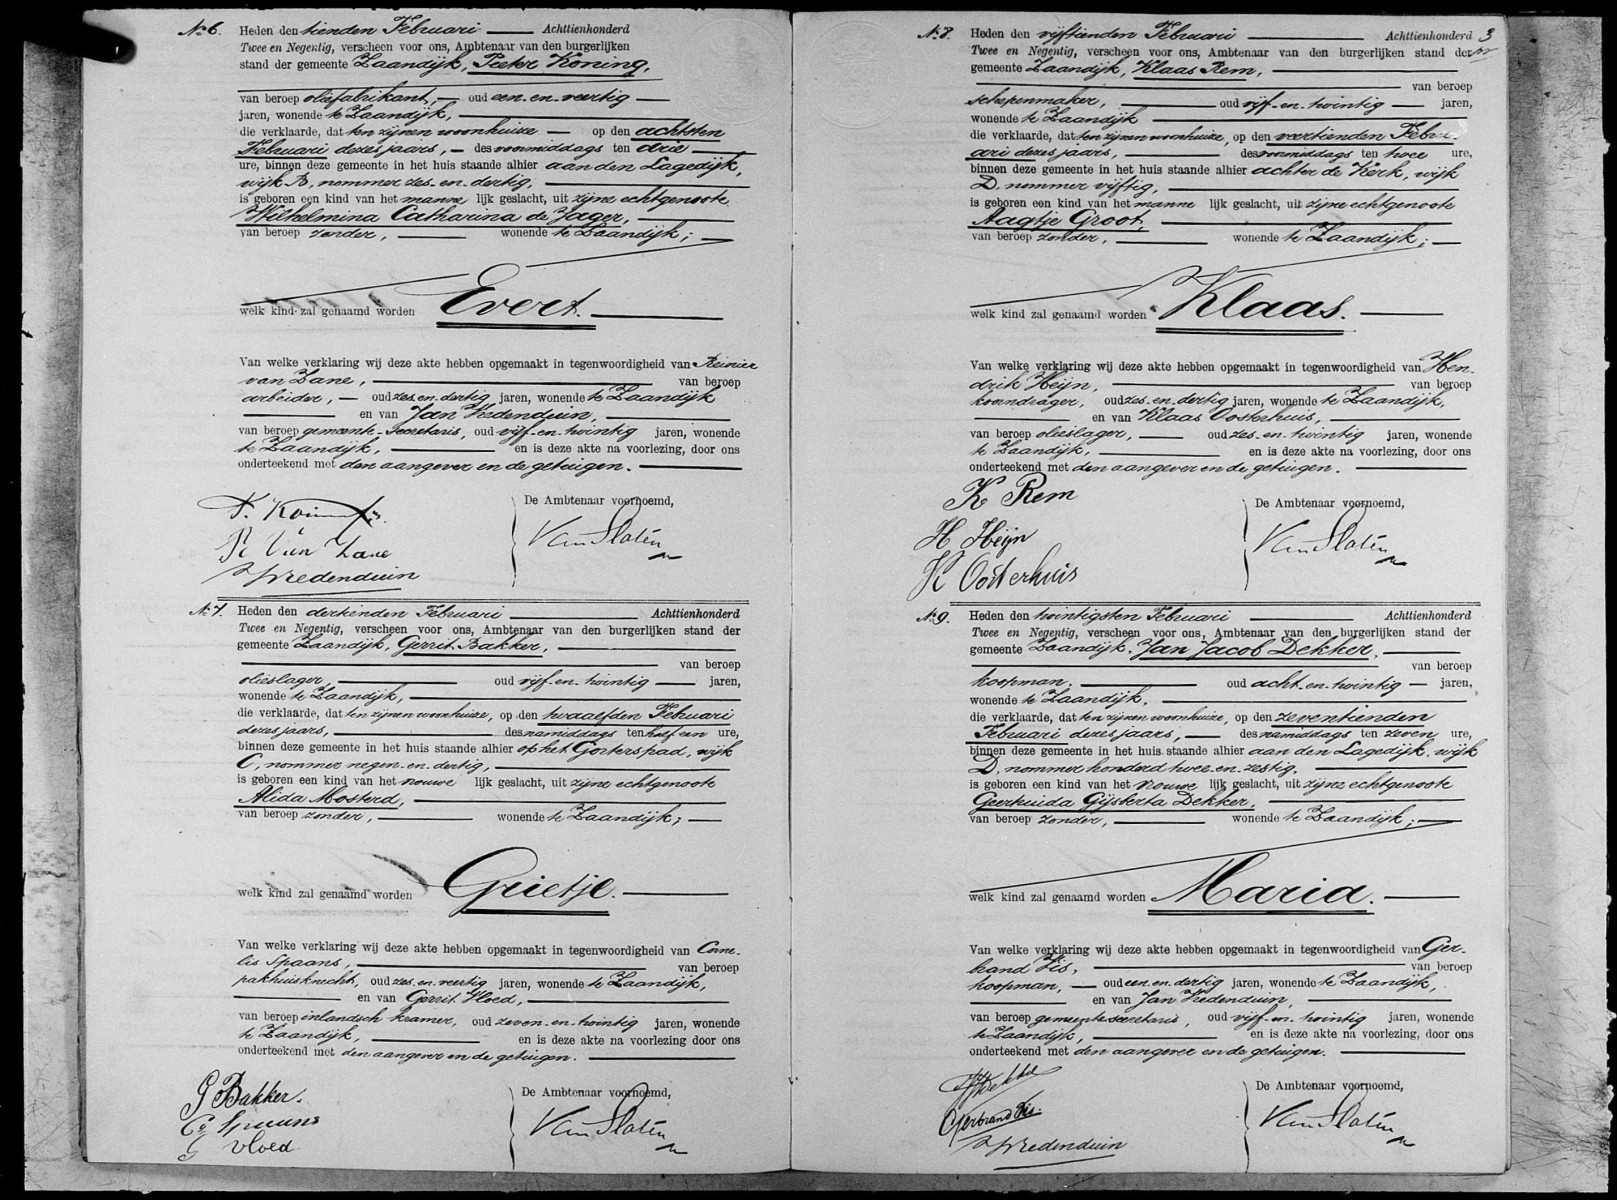 No 6. Heden den tienden Februari Achttienhonderd
Twee en Negentig, verscheen voor ons, Ambtenaar van den burgerlijken
stand der gemeente Zaandijk, Pieter Koning,
van beroep oliefabrikant, oud een-en-veertig
jaren, wonende te Zaandijk,
die verklaarde, dat ten zijnen woonhuize op den achtsten
Februari dezes jaars, des voormiddags ten drie
ure, binnen deze gemeente in het huis staande alhier aan den Lagedijk,
wijk B, nommer zes-en-dertig,
is geboren een kind van het manne lijk geslacht, uit zijne echtgenoote
Wilhelmina Catharina de Jager,
van beroep zonder, wonende te Zaandijk;
welk kind zal genaamd worden Evert.
Van welke verklaring wij deze akte hebben opgemaakt in tegenwoordigheid van Reinier
van Zane, van beroep
arbeider, oud zes-en-dertig jaren, wonende te Zaandijk
en van Jan Vredenduin,
van beroep gemeente-Secretaris, oud vijf-en-twintig jaren, wonende
te Zaandijk, en is deze akte na voorlezing, door ons
onderteekend met den aangever en de getuigen.
De Ambtenaar voornoemd,
P. Koning
R Van Zane
J Vredenduin
Van Slaten
No 7. Heden den dertienden Februari Achttienhonderd
Twee en Negentig, verscheen voor ons, Ambtenaar van den burgerlijken stand der
gemeente Zaandijk, Gerrit Bakker,
van beroep
olieslager, oud vijf-en-twintig jaren,
wonende te Zaandijk,
die verklaarde, dat ten zijnen woonhuize, op den twaalfden Februari
dezes jaars, des namiddags ten half een ure,
binnen deze gemeente in het huis staande alhier op het Gosterspad, wijk
C, nommer negen-en-dertig,
is geboren een kind van het vrouwe lijk geslacht, uit zijne echtgenoote
Alida Mosterd,
van beroep zonder, wonende te Zaandijk;
welk kind zal genaamd worden Grietje.
Van welke verklaring wij deze akte hebben opgemaakt in tegenwoordigheid van Corne-
lis Spaans, van beroep
pakhuisknecht, oud zes-en-veertig jaren, wonende te Zaandijk,
en van Gerrit Vloed,
van beroep inlandsch kramer, oud zeven-en-twintig jaren, wonende
te Zaandijk, en is deze akte na voorlezing, door ons
onderteekend met den aangever en de getuigen.
De Ambtenaar voornoemd,
G Bakker.
Cs Spaans
G Vloed
Van Slaten
3
No 8. Heden den vijftienden Februari Achttienhonderd
Twee en Negentig, verscheen voor ons, Ambtenaar van den burgerlijken stand der
gemeente Zaandijk, Klaas Rem,
van beroep
schepenmaker, oud vijf-en-twintig jaren,
wonende te Zaandijk
die verklaarde, dat ten zijnen woonhuize, op den veertienden Febru-
ari dezes jaars, des voormiddags ten twee ure,
binnen deze gemeente in het huis staande alhier achter de Kerk, wijk
D, nommer vijftig,
is geboren een kind van het manne lijk geslacht, uit zijne echtgenoote
Aagtje Groot,
van beroep zonder, wonende te Zaandijk;
welk kind zal genaamd worden Klaas.
Van welke verklaring wij deze akte hebben opgemaakt in tegenwoordigheid van Hen-
drik Heijn, van beroep
koorndrager, oud zes-en-dertig jaren, wonende te Zaandijk,
en van Klaas Oosterhuis,
van beroep olieslager, oud zes-en-twintig jaren, wonende
te Zaandijk, en is deze akte na voorlezing, door ons
onderteekend met den aangever en de getuigen.
De Ambtenaar voornoemd,
K Rem
H Heijn
K Oosterhuis
Van Slaten
No 9. Heden den twintigsten Februari Achttienhonderd
Twee en Negentig, verscheen voor ons, Ambtenaar van den burgerlijken stand der
gemeente Zaandijk, Jan Jacob Dekker,
van beroep
koopman, oud acht-en-twintig jaren,
wonende te Zaandijk,
die verklaarde, dat ten zijnen woonhuize, op den zeventienden
Februari dezes jaars, des namiddags ten zeven ure,
binnen deze gemeente in het huis staande alhier aan den Lagedijk, wijk
D, nommer honderd twee-en-zestig,
is geboren een kind van het vrouwe lijk geslacht, uit zijne echtgenoote
Geertruida Gijsberta Dekker,
van beroep zonder, wonende te Zaandijk;
welk kind zal genaamd worden Maria.
Van welke verklaring wij deze akte hebben opgemaakt in tegenwoordigheid van Ger-
brand Vis, van beroep
koopman, oud een-en-dertig jaren, wonende te Zaandijk,
en van Jan Vredenduin,
van beroep gemeentesecretaris, oud vijf-en-twintig jaren, wonende
te Zaandijk, en is deze akte na voorlezing, door ons
onderteekend met den aangever en de getuigen.
De Ambtenaar voornoemd,
JJ Dekker
Gerbrand Vis.
J Vredenduin
Van Slaten